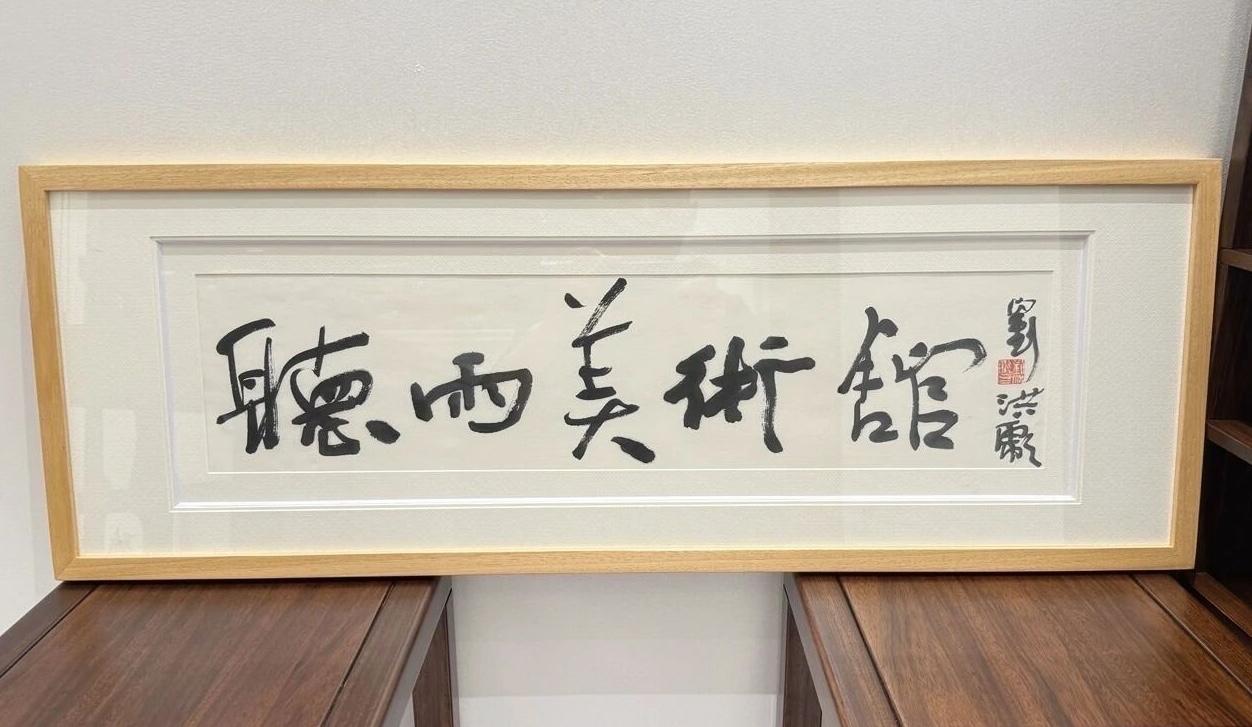 聽雨美術館
劉洪彪